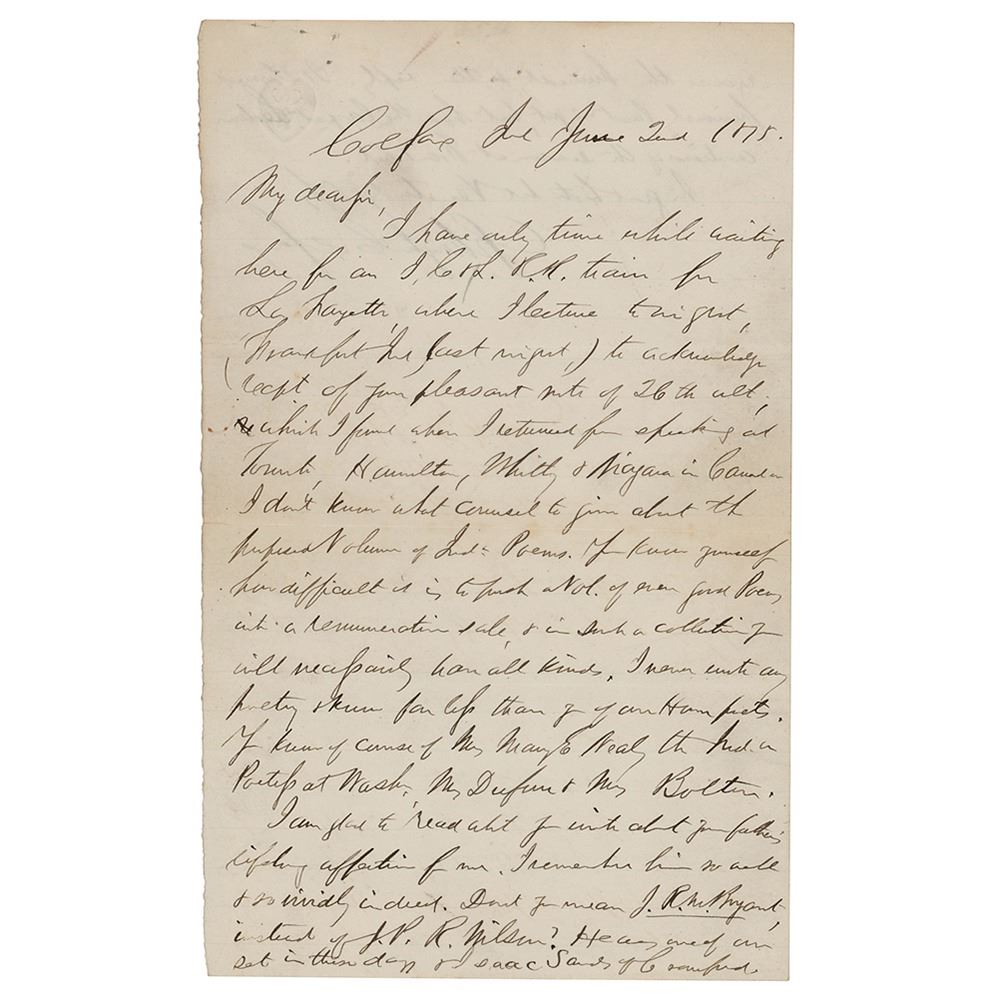 Colfax Ind June 2nd 1875.
My dear sir,
I have only time while waiting
here for an I, C & L. R.R. train for
La Fayette, where I lecture to night,
(Frankfort Ind last night,) to acknowledge
recpt of your pleasant note of 26th ult,
which I found when I returned from speaking at
Toronto, Hamilton, Whitby & Niagara in Canada
I don't know what counsel to give about the
proposed Volume of Inda Poems. You know yourself
how difficult it is to push a Vol. of even good Poems
into a remunerative sale, & in such a collection you
will necessarily have all kinds. I never write any
poetry & know far less than you of our Home poets.
You know of course of Mrs Mary E Nealy the Ind.a
Poetess at Wash, Mrs Dufour & Mrs Bolton.
I am glad to read what you write about your father's
lifelong affection for me. I remember him so well
& so vividly indeed. Dont you mean J. R. M. Bryant,
instead of J. P. R. Wilson? He was one of our
set in those days & Isaac Sands of Crawford.